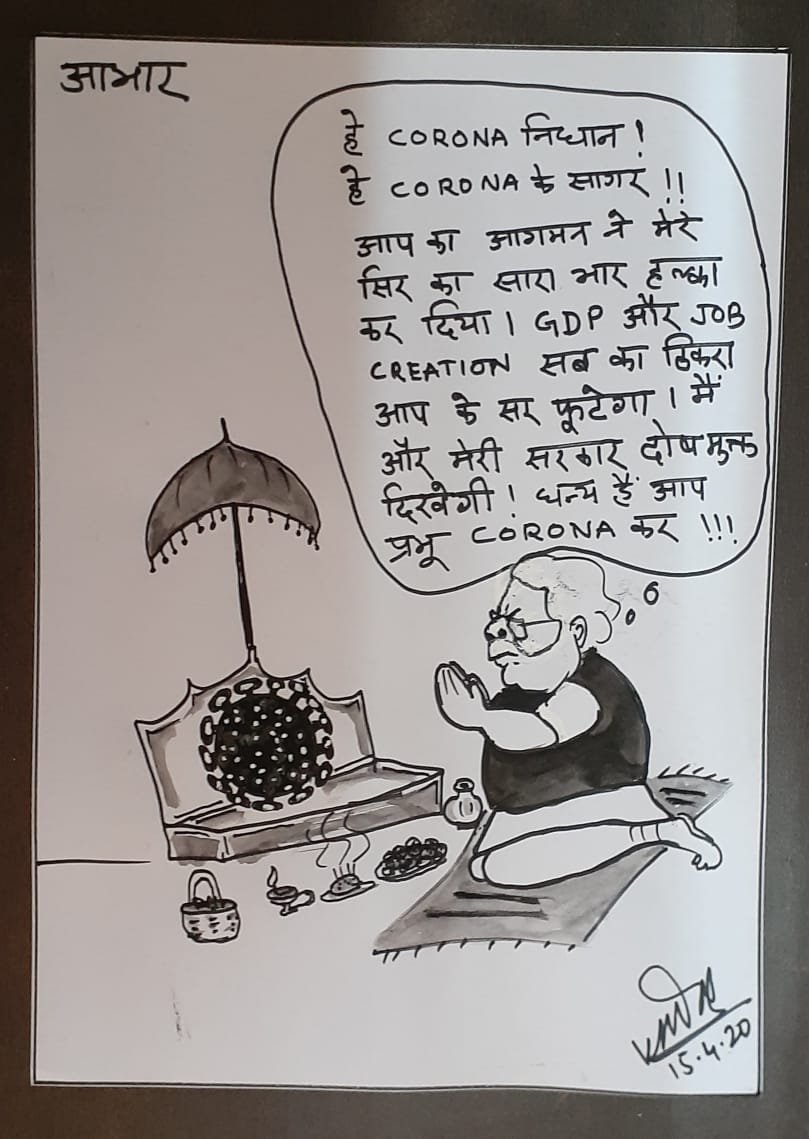 आभार
हे CORONA निधान !
हे CORONA के सागर !!
आप का आगमन ने मेरे
सिर का सारा भार हल्का
कर दिया । GDP और JOB
CREATION सब का ठिकरा
आप के सर फूटेगा । मैं
और मेरी सरकार दोषमुक्त
दिखेगी ! धन्य हैं आप
प्रभू CORONA कर !!!
15.4.20